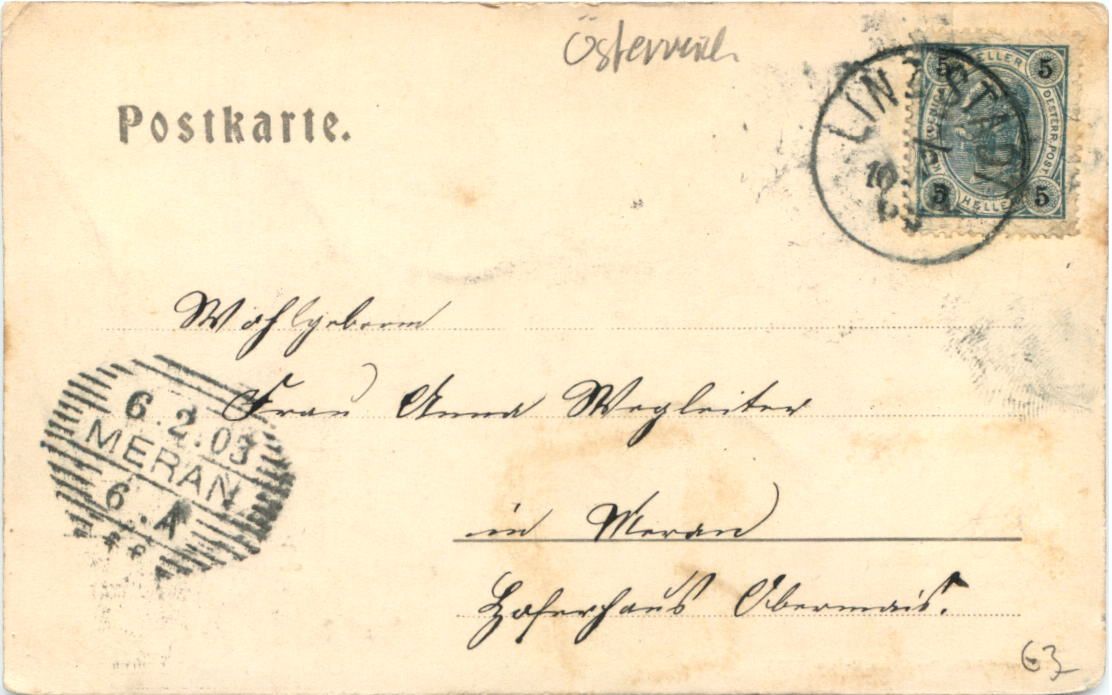 Österreich
Postkarte.
LINZ STADT
10
5 HELLER 5
OESTERR. POST
5 HELLER 5
Wohlgeboren
Frau Anna Wegleiter
in Meran
Hoferhaus Obermais.
6.2.03
MERAN
6.A
63